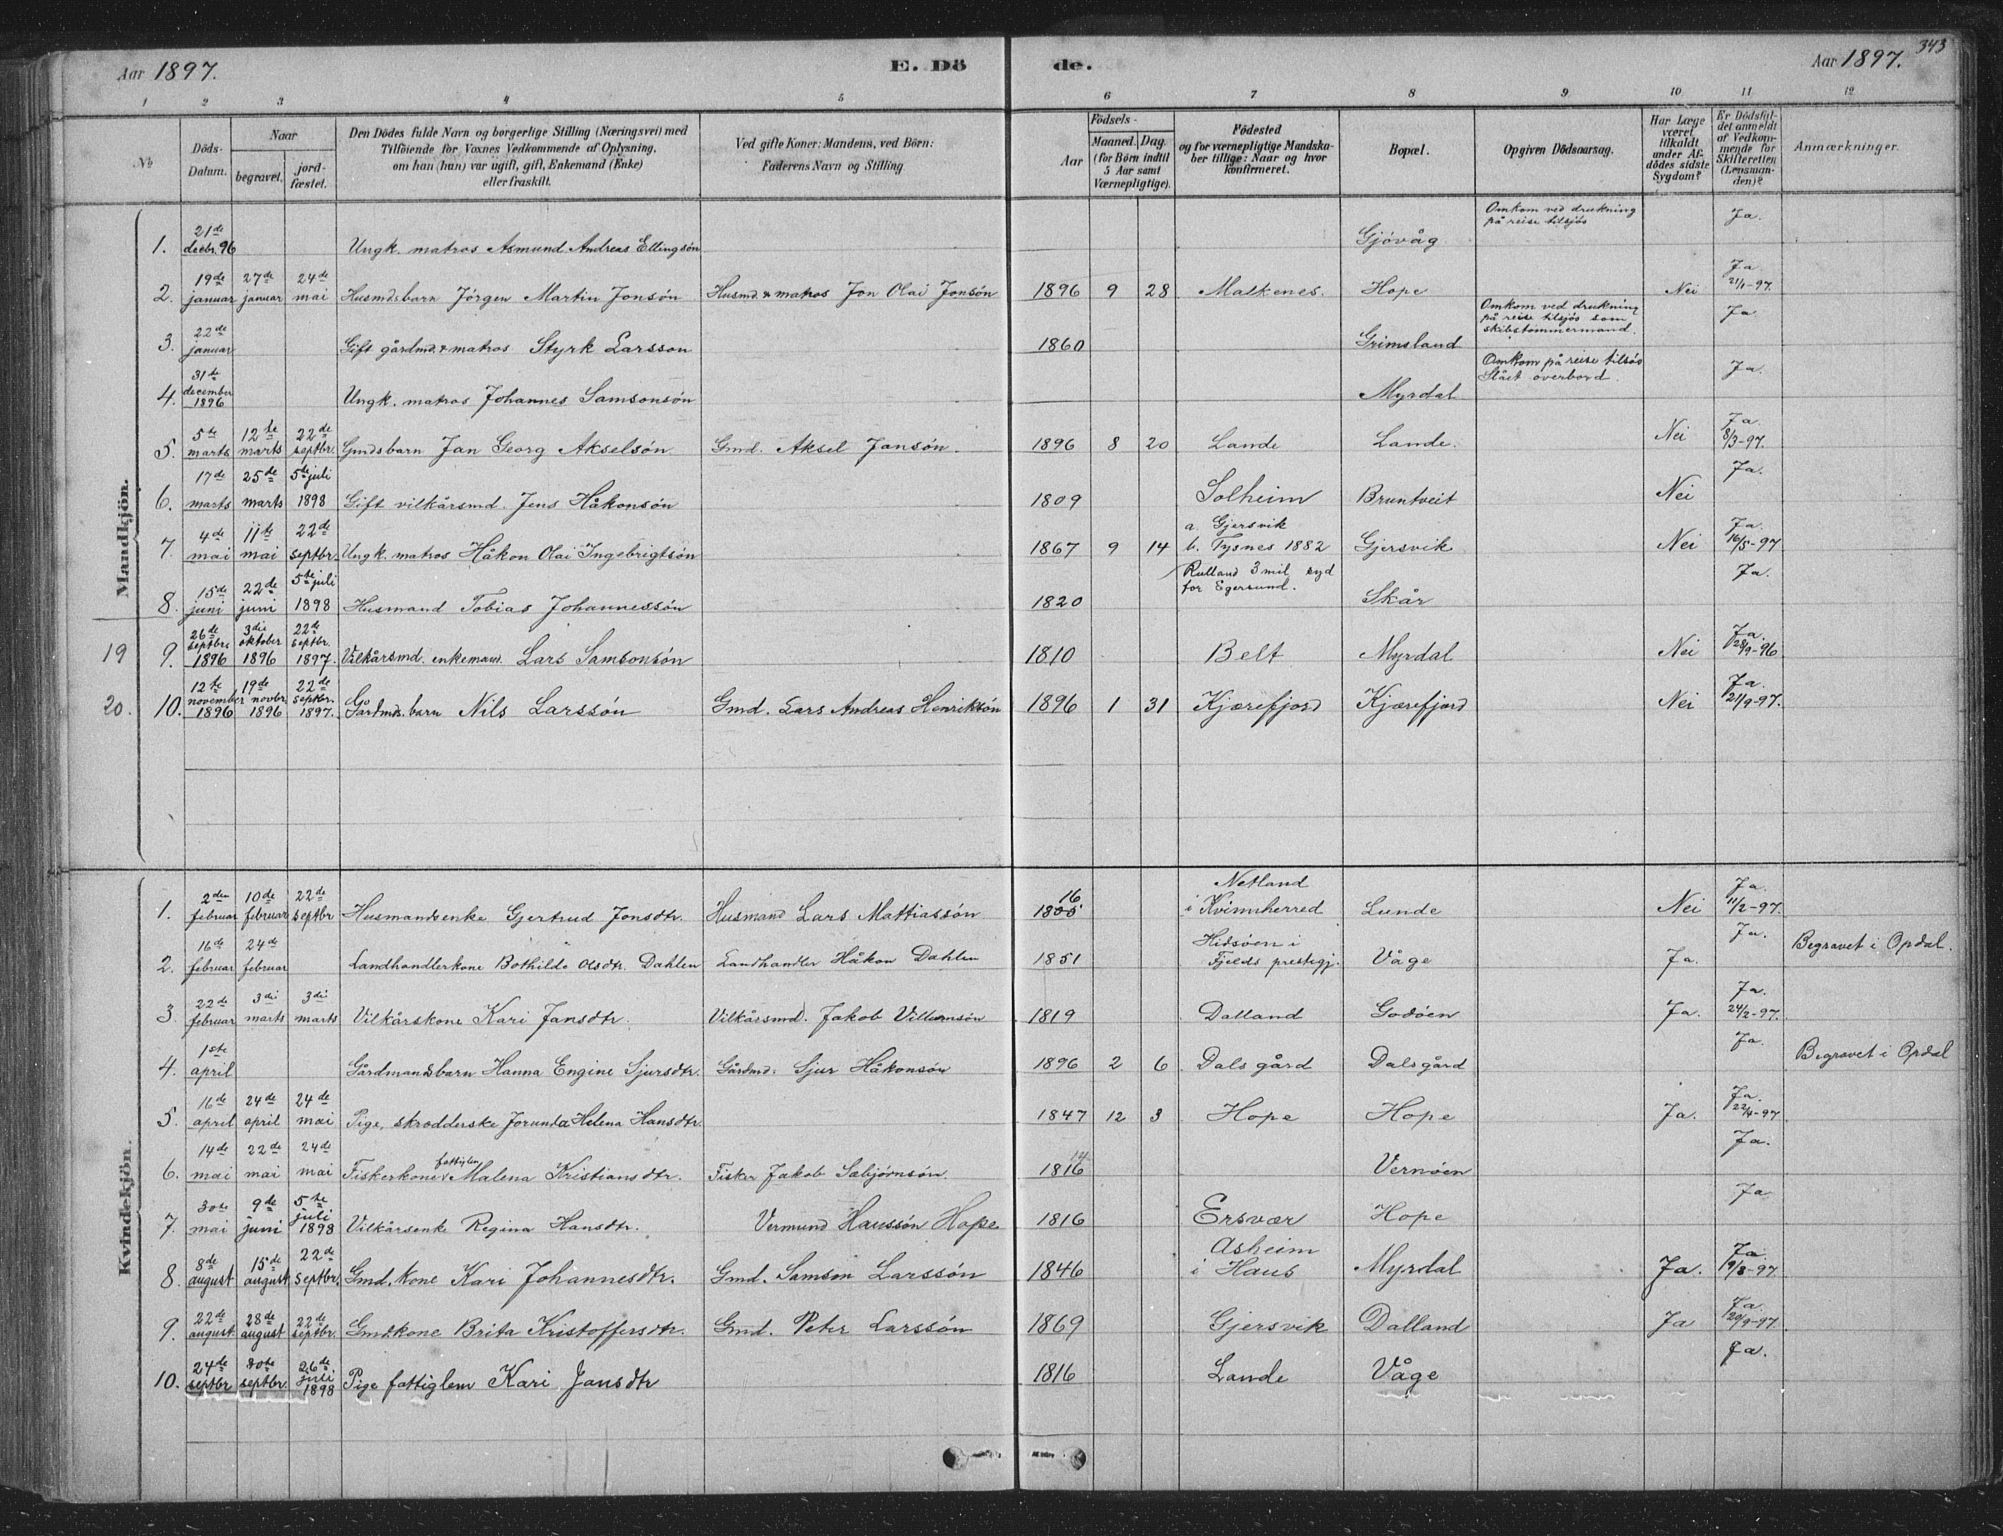 Aar 1897.
E. Dö
de.
Aar 1897.
343
1 2 3 4 5 6 7 8 9 10 11 12
No
Döds-Datum.
Naar
begravet.
jord-fæstet.
Den Dödes fulde Navn og borgerlige Stilling (Næringsvei) med
Tilföiende for Voxnes Vedkommende af Oplysning,
om han (hun) var ugift, gift, Enkemand (Enke)
eller fraskilt.
Ved gifte Koner: Mandens, ved Börn:
Faderens Navn og Stilling
Födsels-
Aar
Maaned. Dag.
(for Börn indtil
5 Aar samt
Værnepligtige).
Födested
og for værnepligtige Mandska-
ber tillige: Naar og hvor
konfirmeret.
Bopæl.
Opgiven Dödsaarsag.
Har Læge
været
tilkaldt
under Af-
dödes sidste
Sygdom?
Er Dödsfal-
det anmeldt
af Vedkom-
mende for
Skifteretten
(Lensman-
den)?
Anmærkninger.
Mandkjön.
1. 21de decbr. 96 Ungk. matros Asmund Andreas Ellingsøn Gjóvåg Omkom ved drukning på reise tilsjös Ja.
2. 19de januar 27de januar 24de mai Husmdsbarn Jörgen Martin Jonsøn Husmd & matros Jon Olai Jonsön 1896 9 28 Malkenes. Hope Nei Ja 21/1-97.
3. 22de januar Gift gårdmd. & matros Styrk Larsson 1860 Grimsland Omkom ved drukning på reise tilsjös som skibstömmermand. Ja
4. 31te december 1896 Ungk. matros Johannes Samsonsøn Myrdal Omkom på reise tilsös Slået overbord. Ja.
5. 5te marts 12te marts 22de septbr. Gmdsbarn Jan Georg Akselsön Gmd. Aksel Jansön. 1896 8 20 Lande Lande. Nei Ja 8/3-97.
6. 17de marts 25de marts 5te juli 1898 Gift vilkårsmd. Jens Håkonsön 1809 Solheim Bruntveit Nei Ja.
7. 4de mai 11te mai 22de septbr. Ungk. matros Håkon Olai Ingebrigtsön 1867 9 14 a. Gjersvik b. Tysnes 1882 Gjersvik Nei Ja. 16/5-97
8. 15de juni 22de juni 5te juli 1898 Husmand Tobias Johannessön 1820 Rulland 3 mil syd for Egersund. Skår Ja.
19 9. 26de septbr. 1896 3die oktober 1896 22de septbr. 1897. Vilkårsmd. enkemand Lars Samsonsön 1810 Belt Myrdal Nei Ja 28/9-96
20. 10. 12te november 1896 19de novbr. 1896 22de septbr. 1897. Gårdmds.barn Nils Larssön Gmd. Lars Andreas Henriksön 1896 1 31 Kjærefjord Kjærefjord Nei Ja. 21/9-97.
Kvindekjön.
1. 2den februar 10de februar 22de septbr Husmandsenke Gjertrud Jonsdtr. Husmand Lars Mattiassön 16 1805 Netland i Kvinnherred Lunde Nei Ja. 11/2-97.
2. 16de februar 24de februar Landhandlerkone Bothilde Olsdtr. Dahlen Landhandler Håkon Dahlen 1851 Hidsöen i Fjelds prestegj. Våge Ja. Ja. Begravet i Opdal.
3. 22de februar 3die marts 3die marts Vilkårskone Kari Jansdtr. Vilkårsmd. Jakob Villumsön 1819 Dalland Godöen Ja. Ja. 24/2-97.
4. 1ste april Gårdmandsbarn Hanna Engine Sjursdtr. Gårdmd. Sjur Håkonsön 1896 2 6 Dalsgård Dalsgård Ja. Begravet i Opdal
5. 16de april 24de april 24de mai Pige, skrodderske Jorunda Helena Hansdtr. 1847 12 3 Hope Hope Ja. Ja. 22/4-97.
6. 14de mai 22de mai 24de mai Fiskerkone fattiglem Malena Kristiansdtr. Fisker Jakob Sæbjörnsön. 14 1816 Vernöen Ja.
7. 30te mai 9de juni 5te juli 1898 Vilkårsenke Regina Hansdtr. Vermund Haussön Hope 1816 Ersvær Hope Ja
8. 8de august 15de august 22de septbr. Gmd. kone Kari Johannesdtr. Gmd. Samson Larssön 1846 Asheim i Haus Myrdal Ja. Ja. 9/8-97
9. 22de august 28de august 22de septbr. Gmdkone Brita Kristoffersdtr. Gmd. Peter Larssön 1869 Gjersvik Dalland Ja Ja. 20/9-97.
10. 24de septbr 30te septbr 26de juli 1898 Pige fattiglem Kari Jansdtr 1816 Lande Våge Ja.